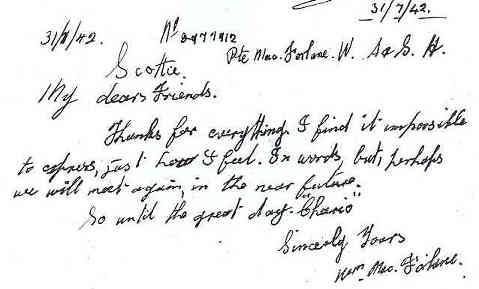 31/7/42.
31/8/42. No 2977912
Pte Mac. Forlane. W. A & S. H.
Scottie.
My dears Friends.
Thanks for everything I find it impossible
to express, just how I feel. In words, but, perhaps
we will meet again, in the near future.
So until the great day. "Cheerio"
Sincerly Yours
Wm. Mac. Forlane.